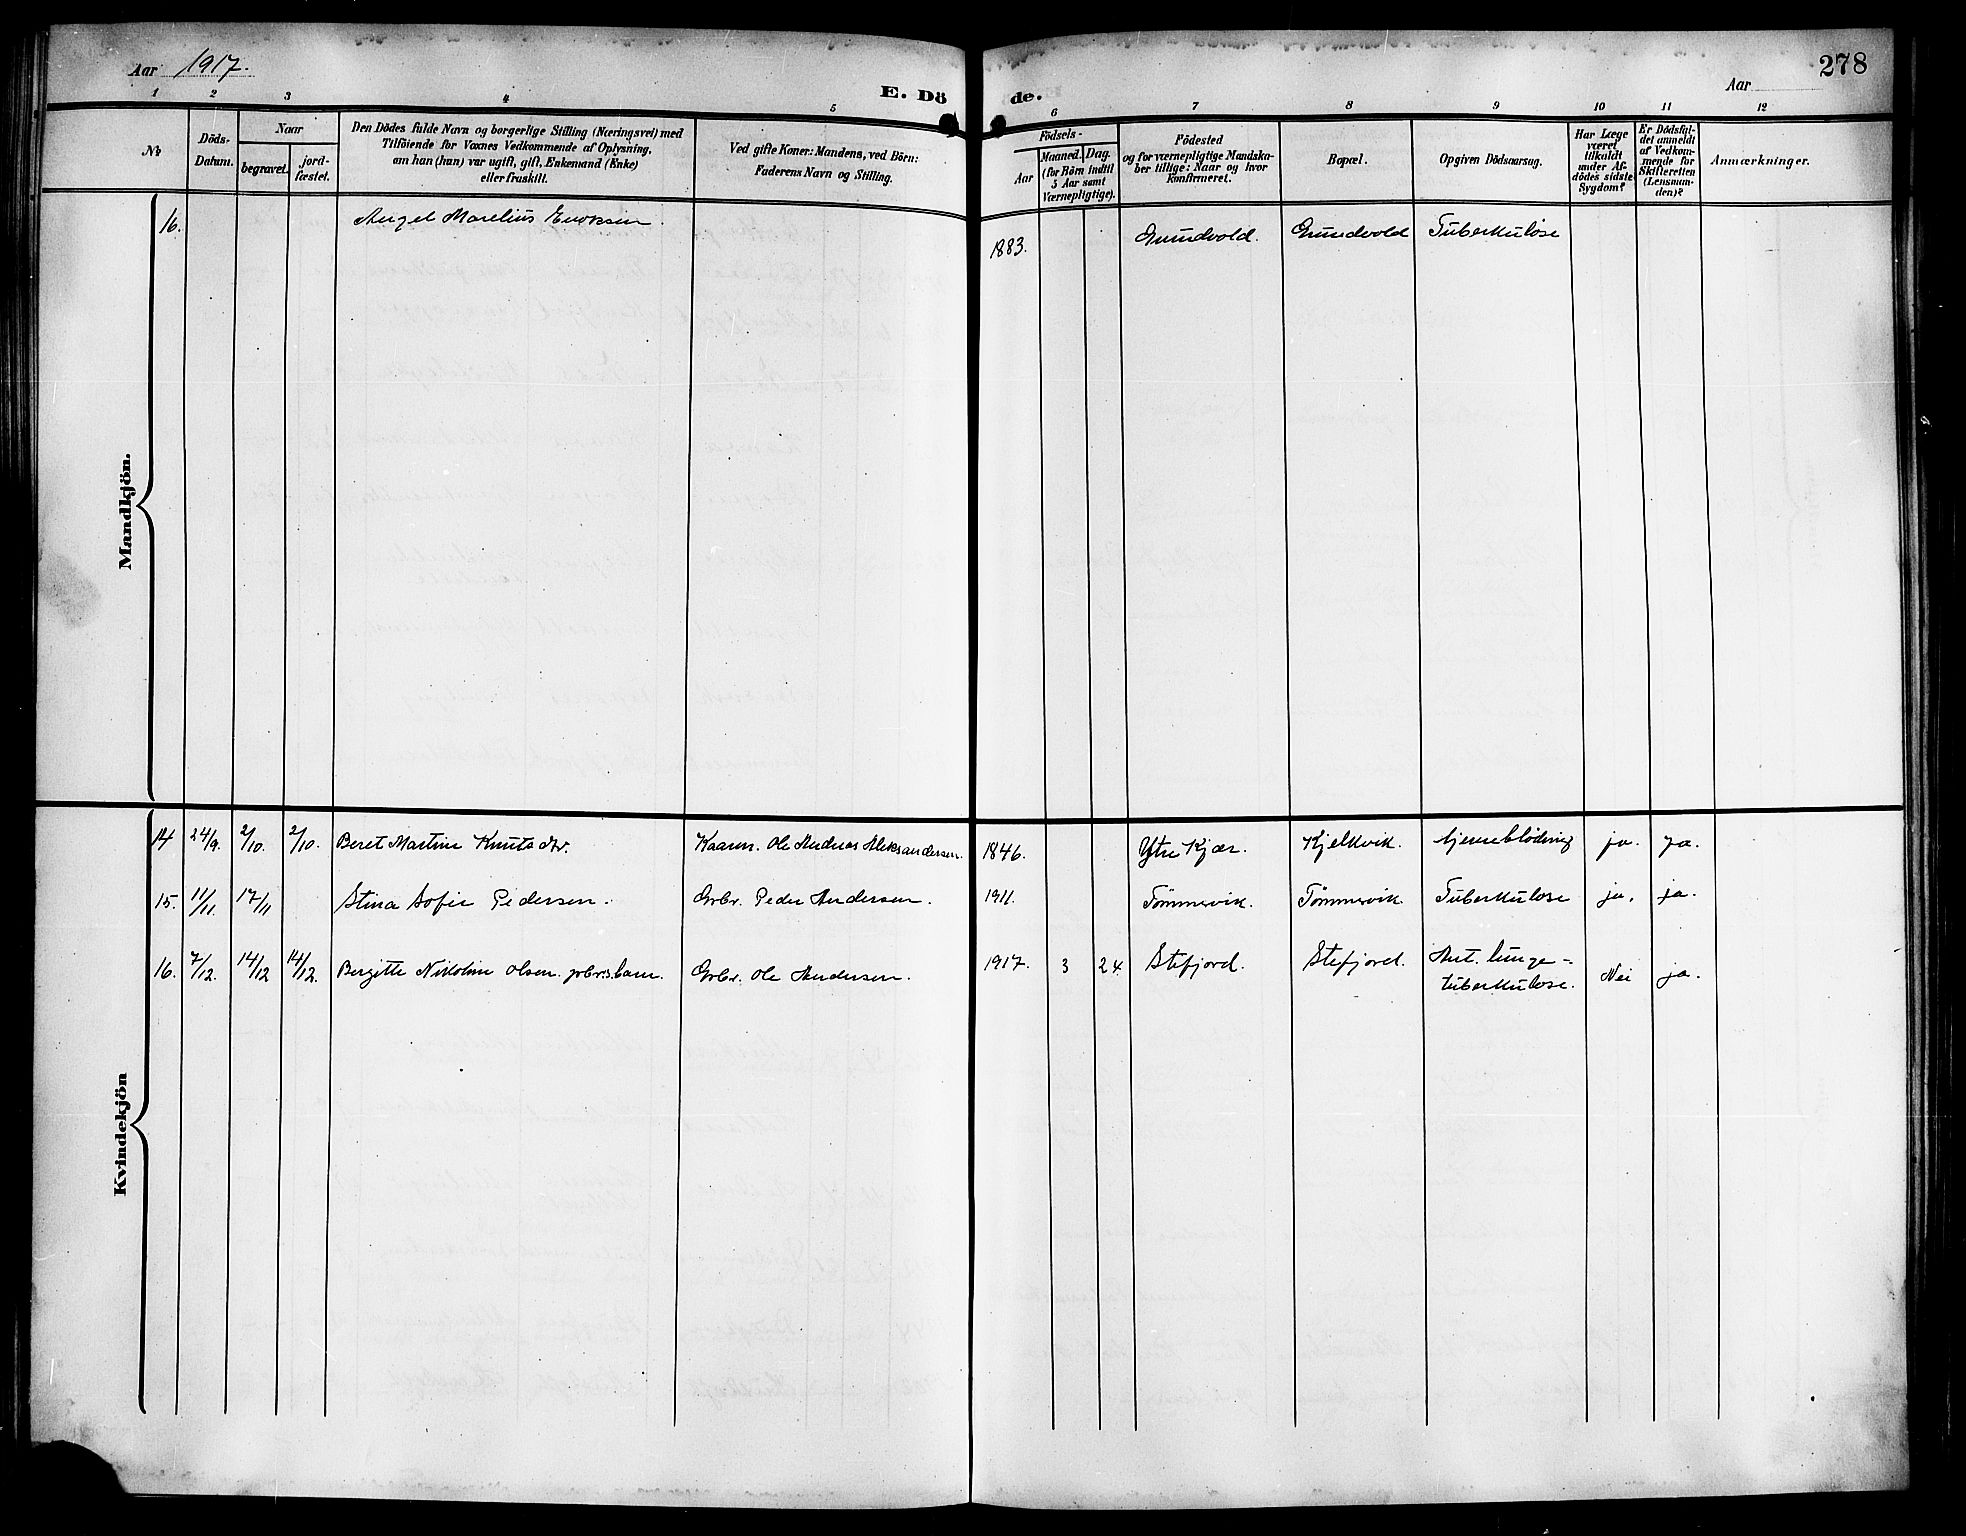 Aar 1917.
E. Dö de.
Aar
278
1 2 3 4 5 6 7 8 9 10 11 12
№
Döds-
Datum.
Naar
begravet.
jord-
fæstet.
Den Dödes fulde Navn og borgerlige Stilling (Næringsvei) med
Tilföiende for Voxnes Vedkommende af Oplysning,
om han (hun) var ugift, gift, Enkemand (Enke)
eller fraskilt.
Ved gifte Koner: Mandens, ved Börn:
Faderens Navn og Stilling.
Födsels-
Aar
Maaned. Dag.
(for Börn indtil
5 Aar samt
Værnepligtige).
Födested
og for værnepligtige Mandska-
ber tillige: Naar og hvor
konfirmeret.
Bopæl.
Opgiven Dödsaarsag.
Har Læge
været
tilkaldt
under Af-
dödes sidste
Sygdom?
Er Dödsfal-
det anmeldt
af Vedkom-
mende for
Skifteretten
(Lensman-
den)?
Anmærkninger.
Mandkjön.
16. Angel Marelius Enoksen 1883. Grundvold. Grundvold Tuberkulose
Kvindekjön
14 24/9. 2/10. 2/10. Beret Martine Knutsdtr. Kaarm. Ole Andreas Aleksandersen. 1846. Ytre Kjær. Kjelkvik. hjerneblødning ja. ja.
15. 11/11. 17/11 Stina Sofie Pedersen. Grbr. Peder Andersen. 1911. Tømmervik. Tømmervik. Tuberkulose ja. ja.
16. 7/12. 14/12 14/12. Bergitte Nikoline Olsen. grbr.s barn. Grbr. Ole Andersen. 1917. 3 24. Stefjord. Stefjord. Ant. lunge-
tuberkulose. Nei ja.